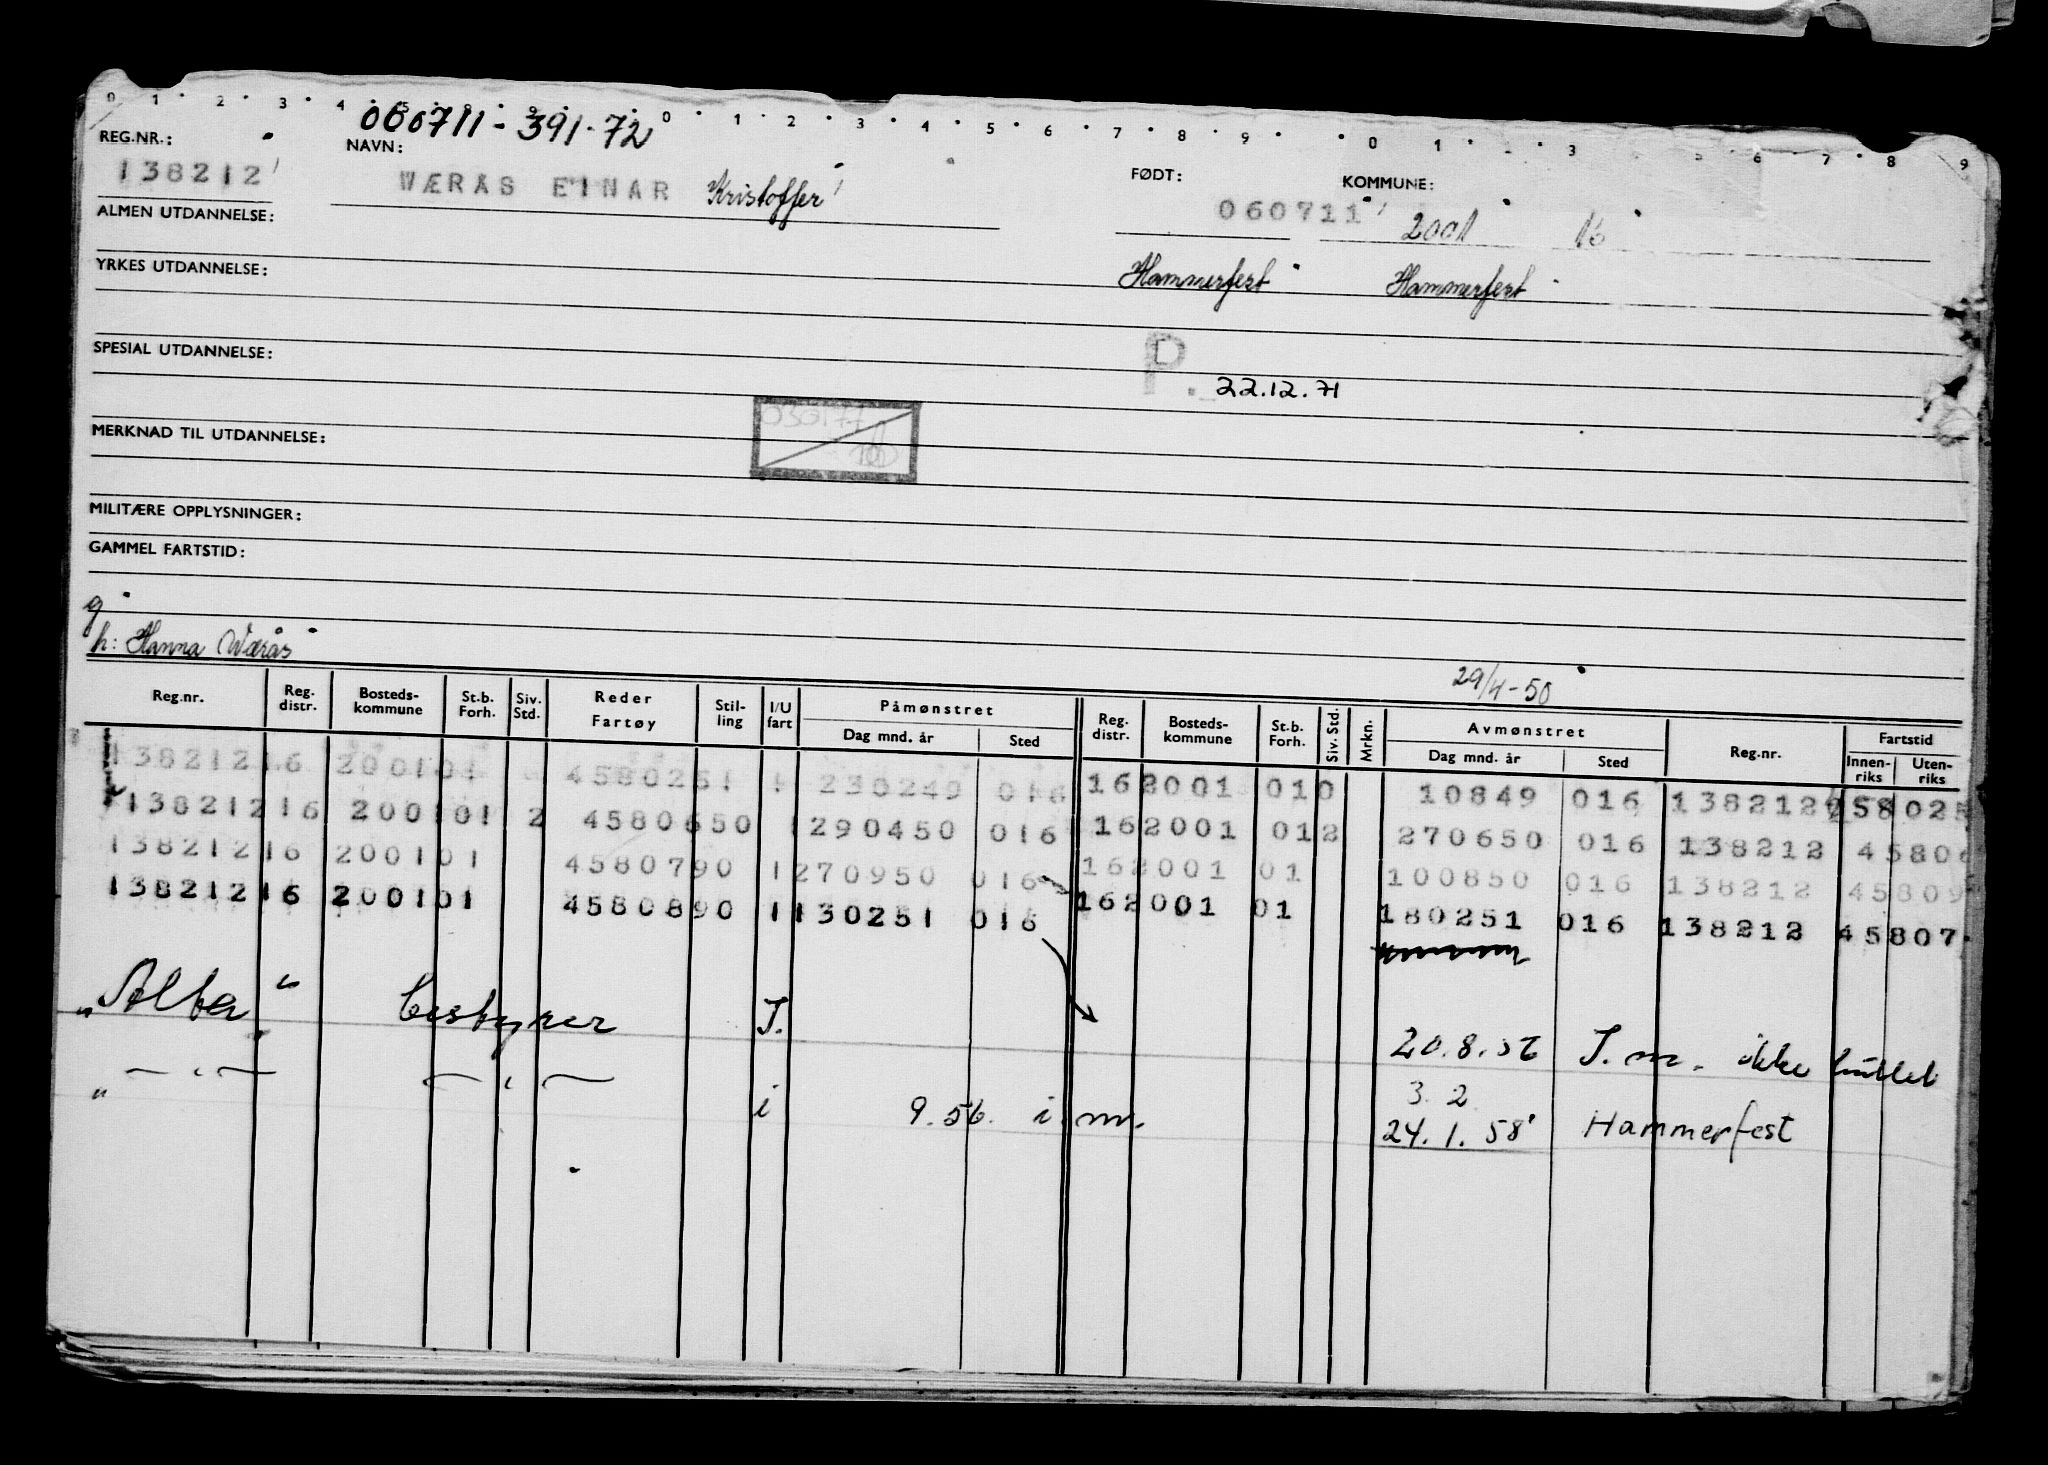 0 1 2 3 4 5 6 8 9 0 1 2 3 4 5 6 7 8 9 0 1 2 3 5 6 7 8 9
060711-391-72
REG.NR.: NAVN: FØDT: KOMMUNE:
138212 WÆRÅS EINAR Kristoffer 060711 2001 16
ALMEN UTDANNELSE:
Hammerfest Hammerfest
YRKES UTDANNELSE:
SPESIAL UTDANNELSE:
P. 22.12.71
030177
MERKNAD TIL UTDANNELSE:
MILITÆRE OPPLYSNINGER:
GAMMEL FARTSTID:
g
h: Hanna Wærås
29/4-50
Reg.nr. Reg. distr. Bosteds-kommune St.b. Forh. Siv. Std. Reder Fartøy Stil-ling I/U fart Påmønstret Dag mnd. år Sted Reg. distr. Bosteds-kommune St.b. Forh. Siv. Std. Mrkn. Avmønstret Dag mnd. år Sted Reg.nr. Fartstid Innen-riks Uten-riks
138212 16 2001 01 4580251 1 230249 016 16 2001 01 0 10849 016 138212 458025
138212 16 2001 01 2 4580650 1 290450 016 16 2001 01 2 270650 016 138212 45806
138212 16 2001 01 4580790 1 270950 016 16 2001 01 100850 016 138212 45809
138212 16 2001 01 4580890 1 130251 016 16 2001 01 180251 016 138212 45807
"Alta" bestyrer I. 20.8.56 I.m. ikke
" — " — — " — i 9.56. i.m. 3. 2
24.1.58 Hammerfest